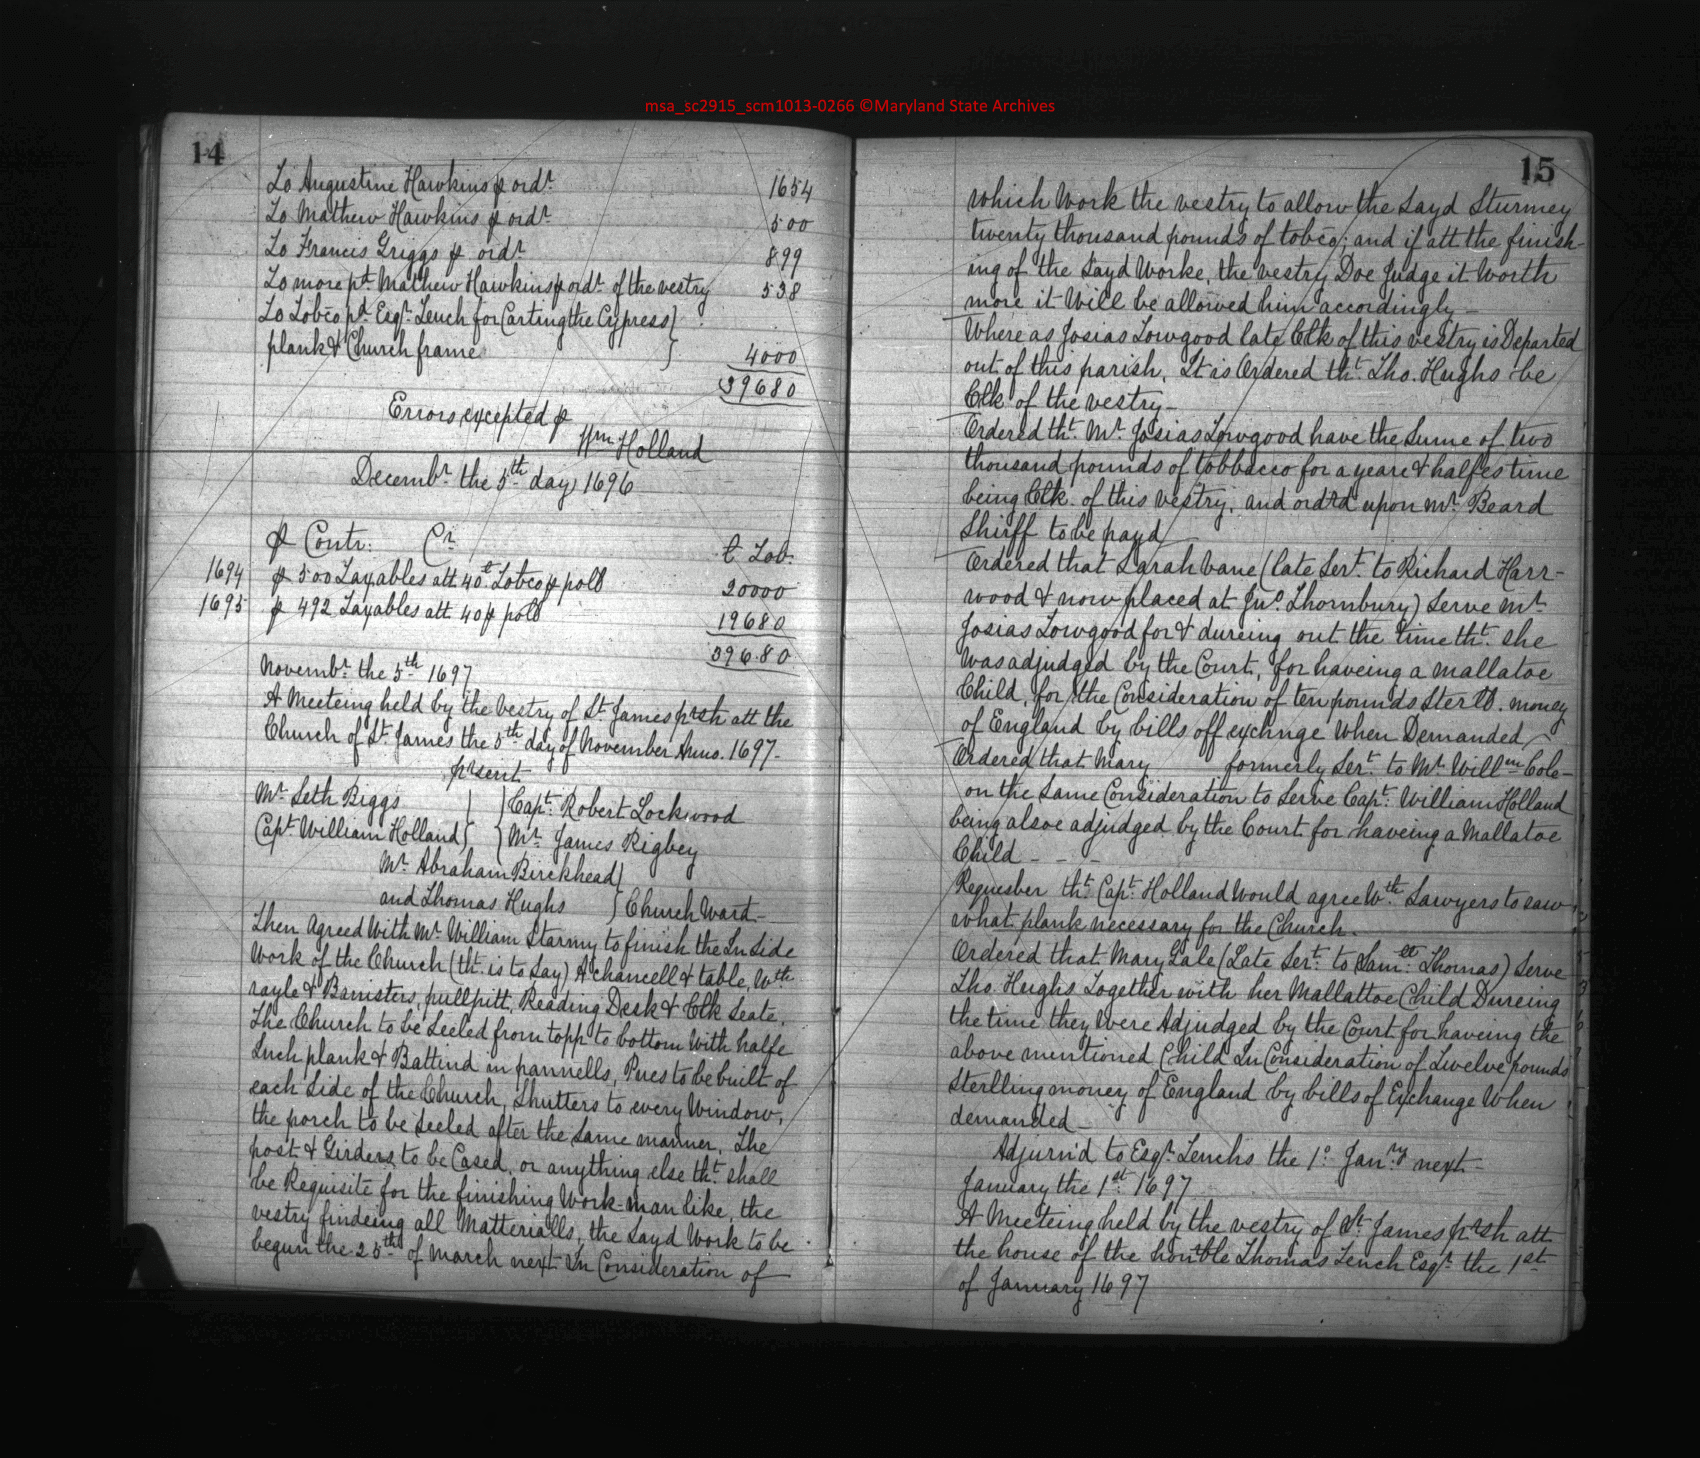 msa_sc2915_scm1013-0266 ©Maryland State Archives
14
To Augustine Hawkins ⅌ ordr. 1654
To Mathew Hawkins ⅌ ordr. 500
To Francis Griggs ⅌ ordr. 899
To more pt. Mathew Hawkins ⅌ ordr. of the vestry 538
To Tobco pd. Esqr. Tench for Carting the Cypress }
plank & Church frame } 4000
39680
Errors excepted ⅌
Wm Holland
Decembr. the 5th day 1696
⅌ Contr: Cr. ℔ Tob.
1694 ⅌ 500 Taxables att 40 ℔ Tobco ⅌ poll 20000
1695 ⅌ 492 Taxables att 40 ⅌ poll 19680
39680
Novembr. the 5th 1697
A Meeteing held by the vestry of St. James prsh att the
Church of St. James the 5th day of November Anno. 1697.
prsent
Mr. Seth Biggs } { Capt. Robert Lockwood
Capt William Holland } { Mr. James Rigbey
Mr. Abraham Birckhead }
and Thomas Hughs } Church Ward—
Then Agreed With Mr. William Starmy to finish the In Side
Work of the Church (tht. is to Say) A chancell & table, Wth
rayle & Banisters, pullpitt, Reading Desk & Clk Seate,
The Church to be Seeled from topp to bottom With halfe
Inch plank & Battind in pannells, Pues to be built of
each Side of the Church, Shutters to every Window,
the porch to be Seeled after the Same manner. The
post & Girders to be Cased, or anything else tht. shall
be Requisite for the finishing Work-man like, the
vestry findeing all Matterialls, the Sayd Work to be
begun the 25th of March next In Consideration of
15
which Work the vestry to allow the Sayd Sturmey
twenty thousand pounds of tobco; and if att the finish-
ing of the Sayd Worke, the vestry Doe Judge it Worth
more it Will be allowed him accordingly —
Where as Josias Towgood late Clk of this vestry is Departed
out of this parish, It is Ordered tht. Tho. Hughs be
Clk of the vestry —
Ordered tht. Mr. Josias Towgood have the Sume of two
thousand pounds of tobbacco for a yeare & halfes time
being Clk. of this vestry, and ordrd upon Mr. Beard
Shirff to be payd
Ordered that Sarah Vane (late Sert. to Richard Harr-
wood & now placed at Jno. Thornbury) Serve Mr.
Josias Towgood for & dureing out the time tht. she
Was adjudged by the Court, for haveing a Mallatoe
Child, for the Consideration of ten pounds Sterll. money
of England by bills off exchnge When Demanded
Ordered that Mary formerly Sert. to Mr. Willm Cole—
on the Same Consideration to Serve Capt. William Holland
being alsoe adjudged by the Court for haveing a Mallatoe
Child - - -
Requesber tht. Capt. Holland Would agree Wth Sawyers to saw
what plank necessary for the Church.
Ordered that Mary Lale (Late Sert. to Samll. Thomas) Serve
Tho. Hughs Together with her Mallattoe Child Dureing
the time they Were Adjudged by the Court for haveing the
above mentioned Child In Consideration of Twelve pounds
Sterlling money of England by bills of Exchange When
demanded —
Adjurn'd to Esqr. Tenchs the 1o. Janry next —
January the 1st. 1697
A Meeteing held by the vestry of St. James prsh att
the house of the honrble Thomas Tench Esqr. the 1st
of January 1697